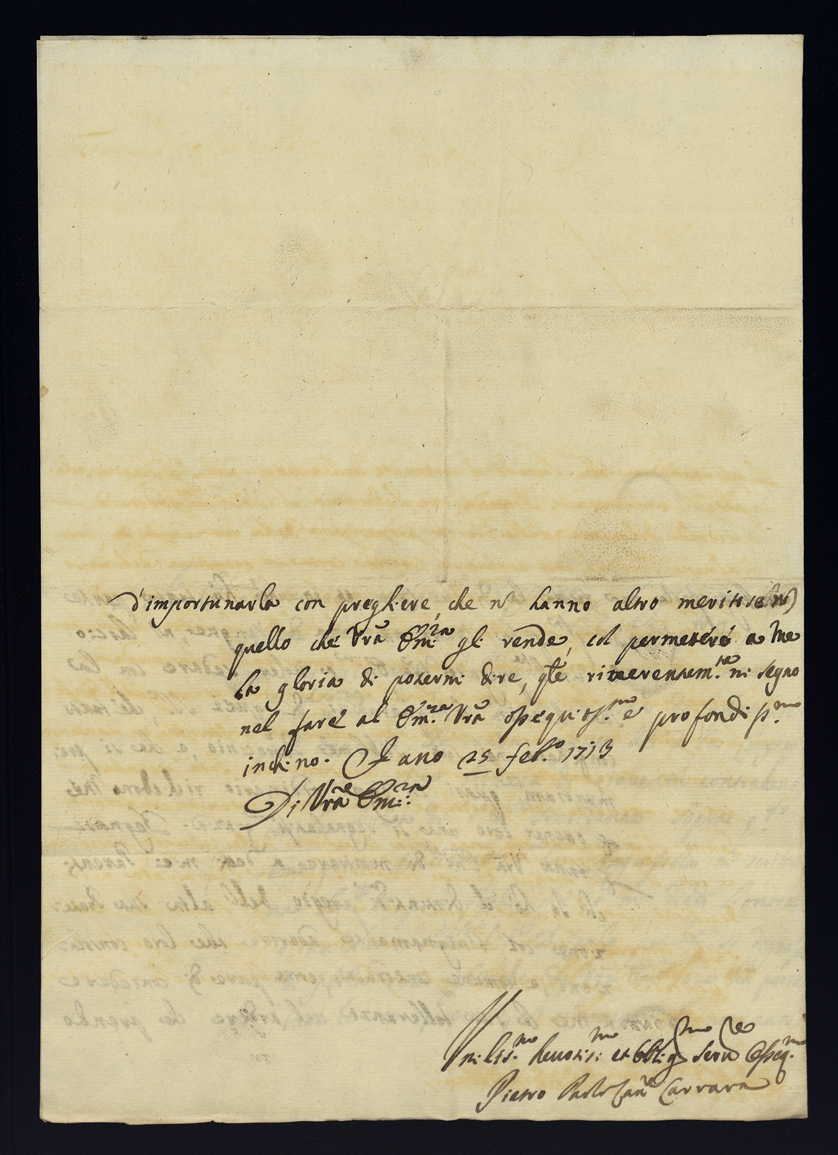 d'importunarla con preghiere, che nō hanno altro merito se nō
quello che Vrā Em.za gli rende, col permetere a me
la gloria di potermi dire, qle riverentem.te mi segno
nel fare al Em.za Vrā ossequios.mo e profondiss.mo
inchino. Fano 25 feb.o 1713
Di Vrā Em.za
Vmilis.mo devotis.mo et obblig.mo Serv.e Osseq.mo
Pietro Paolo Can.co Carrara